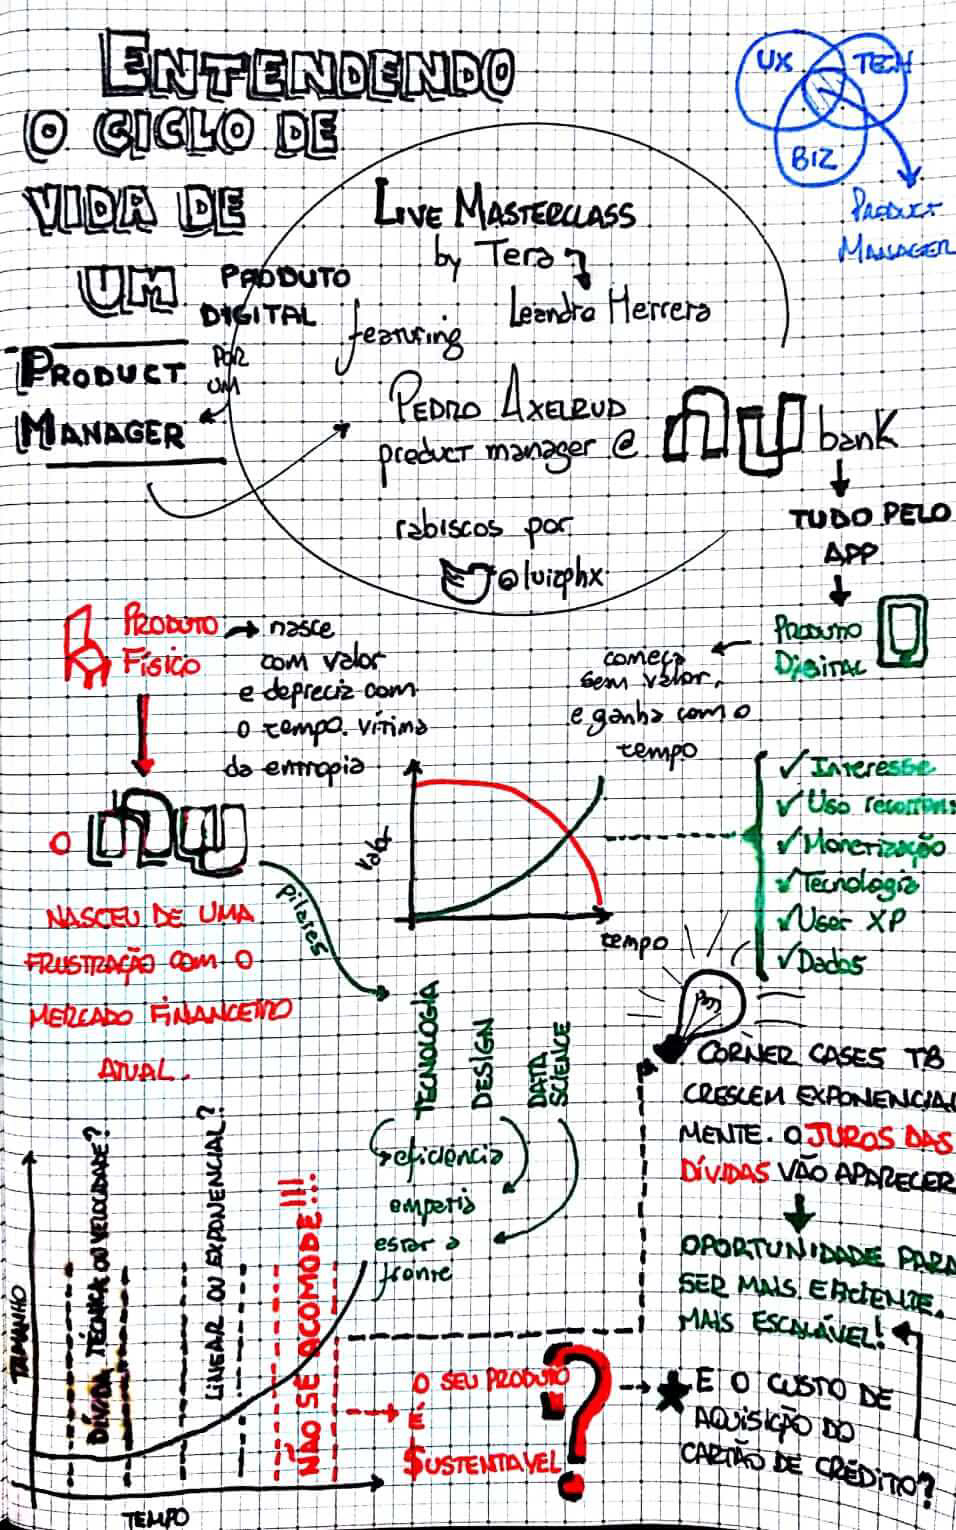 ENTENDENDO
O CICLO DE
VIDA DE
UM PRODUTO
DIGITAL
POR
UM
PRODUCT
MANAGER
UX
TECH
BIZ
PRODUCT
MANAGER
LIVE MASTERCLASS
by Tera
Leandro Herrera
featuring
PEDRO AXELRUD
product manager @ nu bank
rabiscos por
@luizphx
TUDO PELO
APP
PRODUTO
DIGITAL
começa
sem valor,
e ganha com o
tempo
PRODUTO
FÍSICO
nasce
com valor
e deprecia com
o tempo. vítima
da entropia
Valor
tempo
✓ Interesse
✓ Uso recorren
✓ Monetização
✓ Tecnologia
✓ User XP
✓ Dados
O nu
NASCEU DE UMA
FRUSTRAÇÃO COM O
MERCADO FINANCEIRO
ATUAL.
pilares
TECNOLOGIA
DESIGN
DATA
SCIENCE
eficiência
empatia
estar à
frente
CORNER CASES TB
CRESCEM EXPONENCIAL
MENTE. O JUROS DAS
DÍVIDAS VÃO APARECER
OPORTUNIDADE PARA
SER MAIS EFICIENTE.
MAIS ESCALÁVEL!
TAMANHO
DÍVIDA TÉCNICA OU VELOCIDADE?
LINEAR OU EXPONENCIAL?
NÃO SE ACOMODE!!!
TEMPO
O SEU PRODUTO
É
$USTENTAVEL
?
E O CUSTO DE
AQUISIÇÃO DO
CARTÃO DE CRÉDITO?